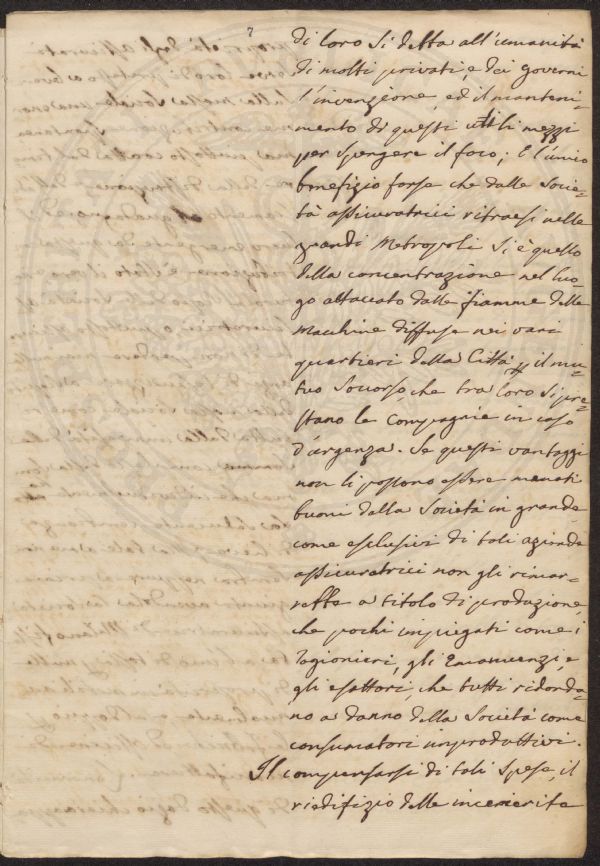 7
di loro si detta all'umanità
di molti privati, e dei governi
l'invenzione, ed il manteni-
mento di questi utili mezzi
per spengere il foco; E l'unico
benefizio forse che dalle Socie-
tà assicuratrici ritraesi nelle
grandi Metropoli si è quello
della concentrazione nel luo-
go attaccato dalle fiamme delle
Macchine diffuse nei vari
quartieri della Città, il mu-
tuo Soccorso, che tra loro si pre-
stano le Compagnie in caso
d'urgenza. Se questi vantaggi
non li possono essere menati
buoni dalla Società in grande
come esclusivi di tali aziende
assicuratrici non gli rimar-
rebbe a titolo di produzione,
che pochi impiegati come i
Ragionieri, gli Emanuenzi e
gli esattori, che tutti ridonda-
no a danno della Società come
consumatori improduttivi.
Il compensarsi di tali spese, il
riedifizio delle incenerite